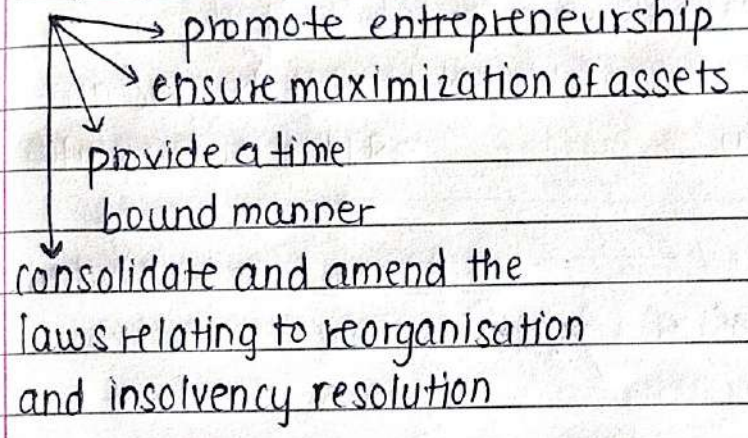 promote entrepreneurship
ensure maximization of assets
provide a time
bound manner
consolidate and amend the
laws relating to reorganisation
and insolvency resolution